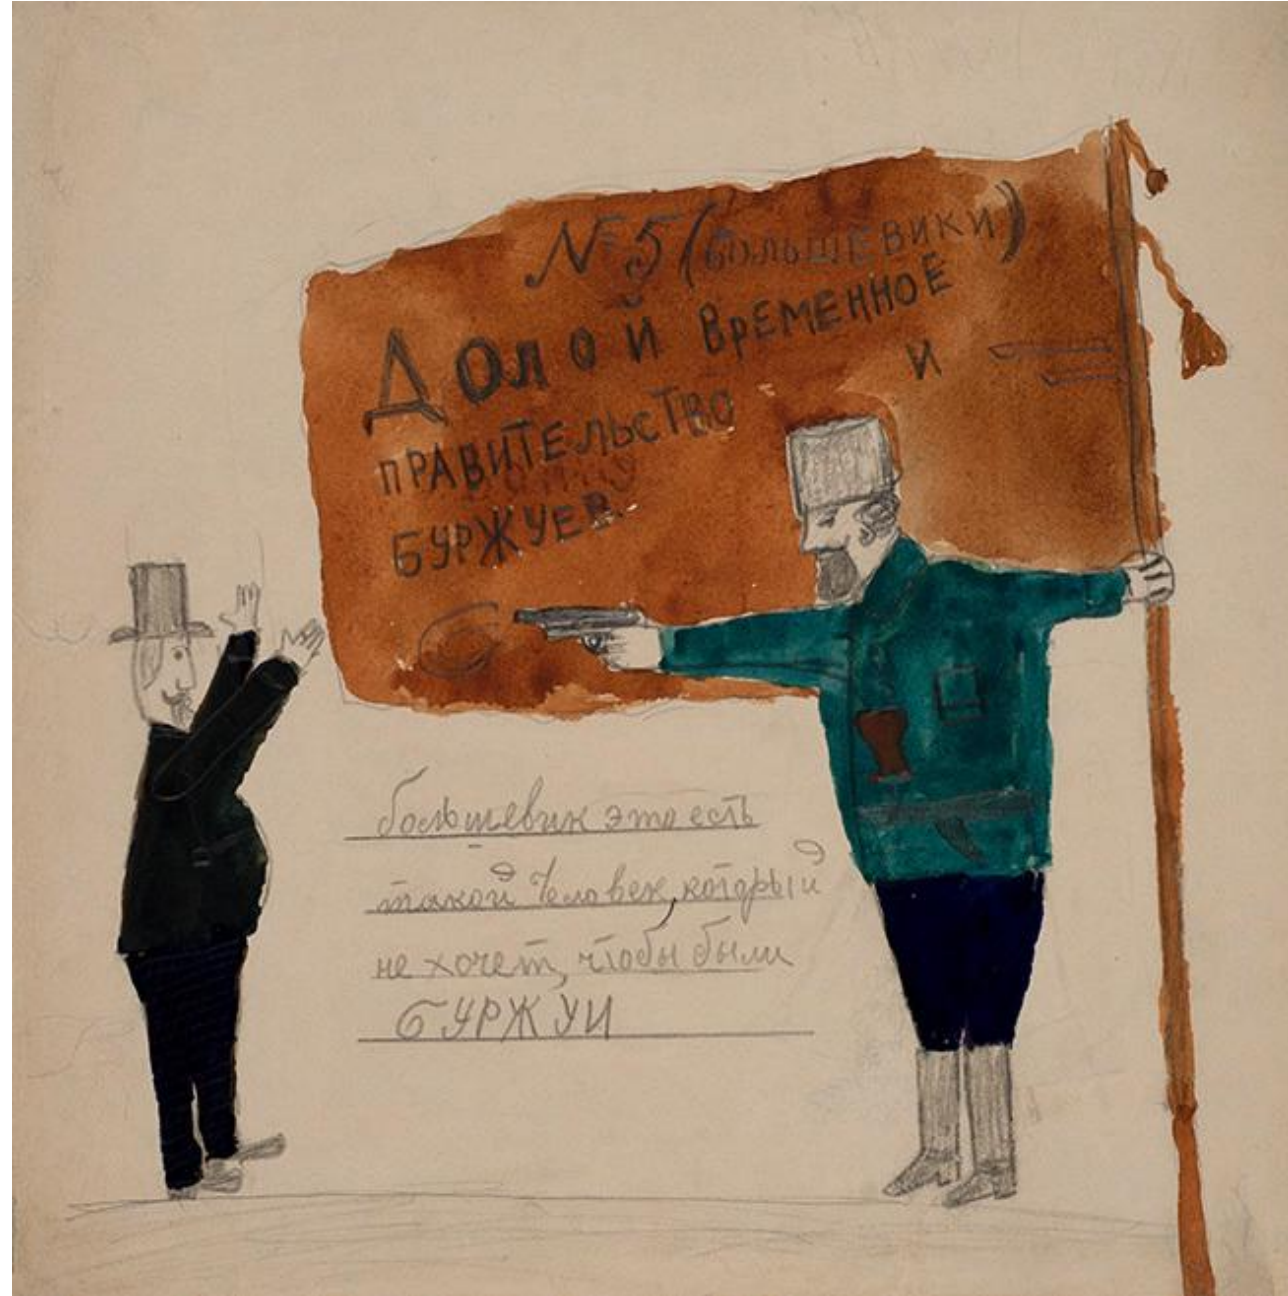 №5 (БОЛЬШЕВИКИ)
Долой ВРЕМЕННОЕ
ПРАВИТЕЛЬСТВО И
БУРЖУЕВ.
большевик это есть
такой человек, который
не хочет, чтобы были
БУРЖУИ